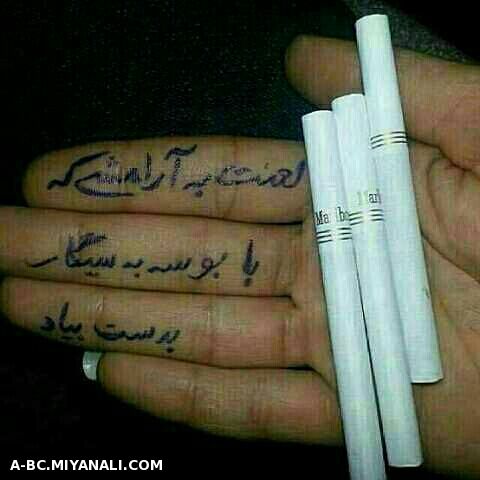 لعنت به آرامشی که
با بوسه به سیگار
بدست بیاد
Marlbo
Marl
A-BC.MIYANALI.COM